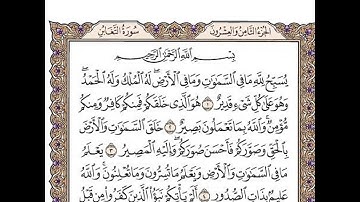 الجزء الثامن والعشرون
سورة التغابن
بِسْمِ اللَّهِ الرَّحْمَٰنِ الرَّحِيمِ
يُسَبِّحُ لِلَّهِ مَا فِي السَّمَاوَاتِ وَمَا فِي الْأَرْضِ لَهُ الْمُلْكُ وَلَهُ الْحَمْدُ
وَهُوَ عَلَىٰ كُلِّ شَيْءٍ قَدِيرٌ ١ هُوَ الَّذِي خَلَقَكُمْ فَمِنكُمْ كَافِرٌ وَمِنكُم
مُّؤْمِنٌ وَاللَّهُ بِمَا تَعْمَلُونَ بَصِيرٌ ٢ خَلَقَ السَّمَاوَاتِ وَالْأَرْضَ
بِالْحَقِّ وَصَوَّرَكُمْ فَأَحْسَنَ صُوَرَكُمْ وَإِلَيْهِ الْمَصِيرُ ٣ يَعْلَمُ
مَا فِي السَّمَاوَاتِ وَالْأَرْضِ وَيَعْلَمُ مَا تُسِرُّونَ وَمَا تُعْلِنُونَ وَاللَّهُ
عَلِيمٌ بِذَاتِ الصُّدُورِ ٤ أَلَمْ يَأْتِكُمْ نَبَأُ الَّذِينَ كَفَرُوا مِن قَبْلُ